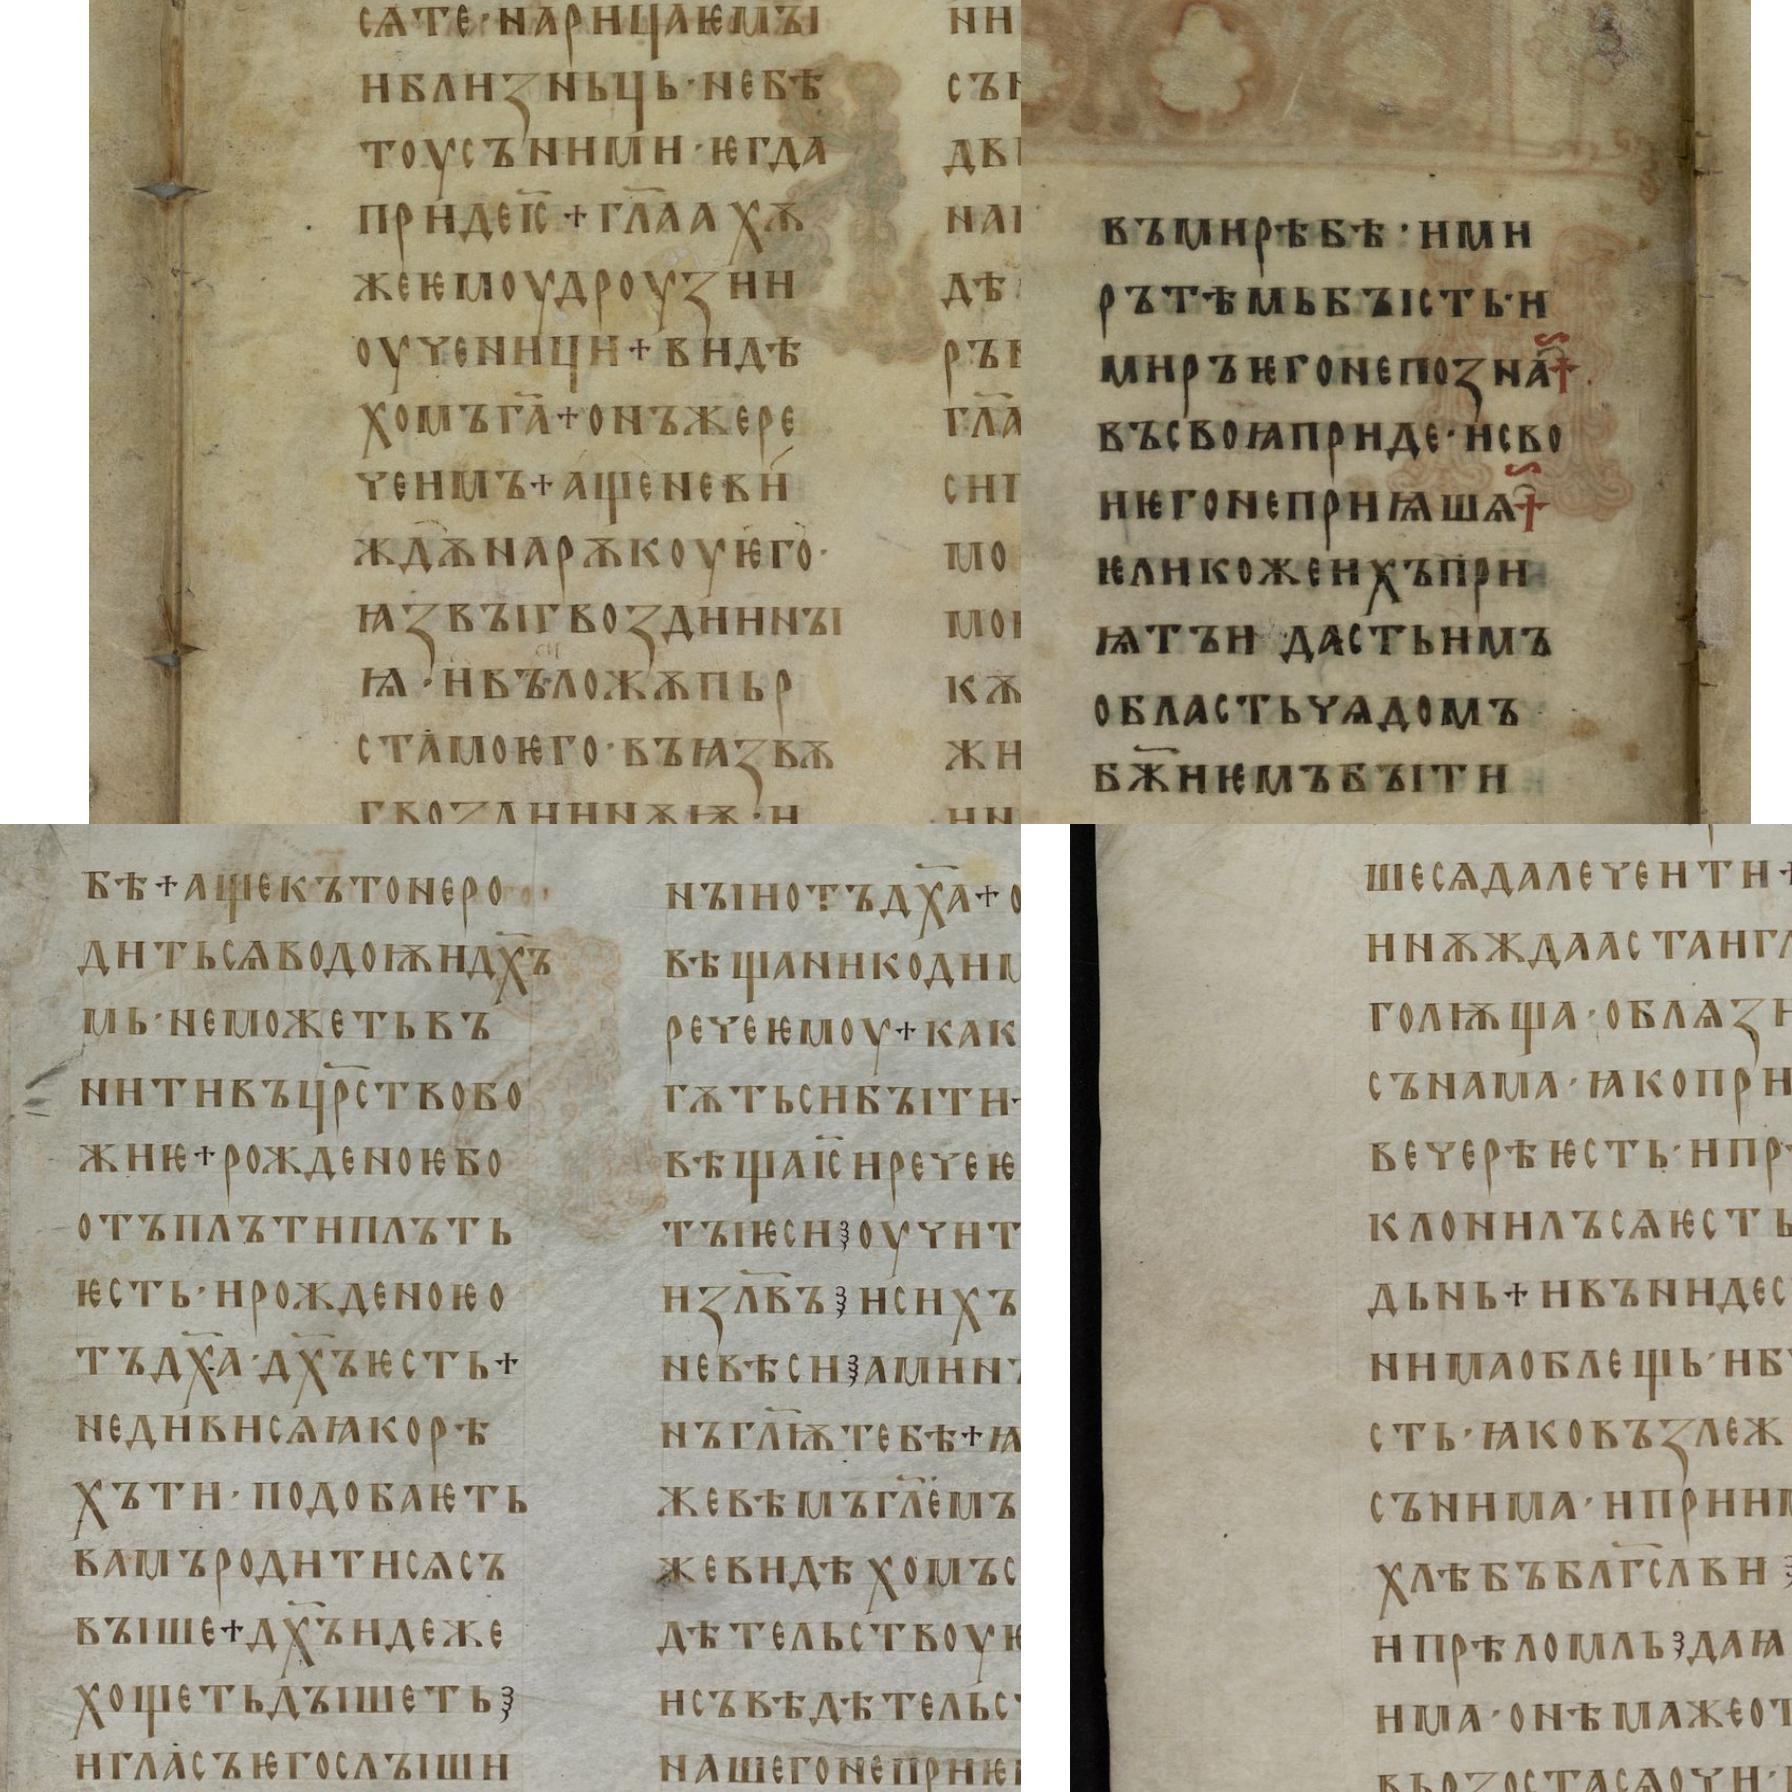 сѧте·нарицаѥмꙑ
иблиꙁ ньць·небѣ
тоусъними·ѥгда
придеі҃с + гл҃аахѫ
жеѥмоудроуꙁ ии
оученици+видѣ
хомъга҃+онъжере
ченмъ+ащеневи
жд̑ѫнарѫкоуѥго·
ꙗꙁвꙑгвоꙁдиинꙑ
ꙗ·ивъложѫпьр
стамоѥго·въꙗꙁвѫ
гвоꙁдиинѫѭ·и
ни
съ
дв
наі
дѣ
ръ
гл҃а
сни
мо
мо
кѫ
жи
ни
въмирѣбѣ·ими
рътѣмьбꙑсть·и
миръѥгонепоꙁна+
въсвоꙗприде·исво
иѥгонеприꙗшѧ+
ѥликожеихъпри
ѩтъи дастьимъ
областьчѧдомъ
бж҃иѥмъбꙑти
бѣ+ащекътонеро
дитьсѧводоѭидх҃ъ
мь·неможетьвъ
нитивъцр҃ствобо
жиѥ+рожденоѥбо
отъплътиплъть
ѥсть·ирожденоѥо
тъдх҃а·дх҃ъѥсть+
недивисѧꙗкорѣ
хъти·подобаѥть
вамъродитисѧсъ
въіше+дх҃ъидеже
хощетьдꙑшетьꙁ
игласъѥгослꙑши
нꙑиотъдх҃а+о
вѣщаникодим
речеѥмоу+как
гѫтьсибꙑти
вѣщаі҃сиречеѥ
тꙑѥсиꙁоучит
иꙁл҃въꙁисихъ
невѣсиꙁамин
нъгл҃ѭтебѣ+ꙗ
жевѣмъгл҃емъ
жевидѣ хомъс
дѣтельствоуѥ
исъвѣдѣтельс
нашегонеприѥ
шесѧдалечеити+
ниѫждаастаигл
голѭща·облѧꙁи
сънама·ꙗкопри
вечерѣѥсть·ипр
клонилъсѧѥсть
дьнь+ивънидес
нимаоблещь·иб
сть·ꙗковъꙁлеж
съними·иприим
хлѣбъблг҃слви
ипрѣломльꙁдаꙗ
има·онѣмажеот
врьꙁостасѧочи·